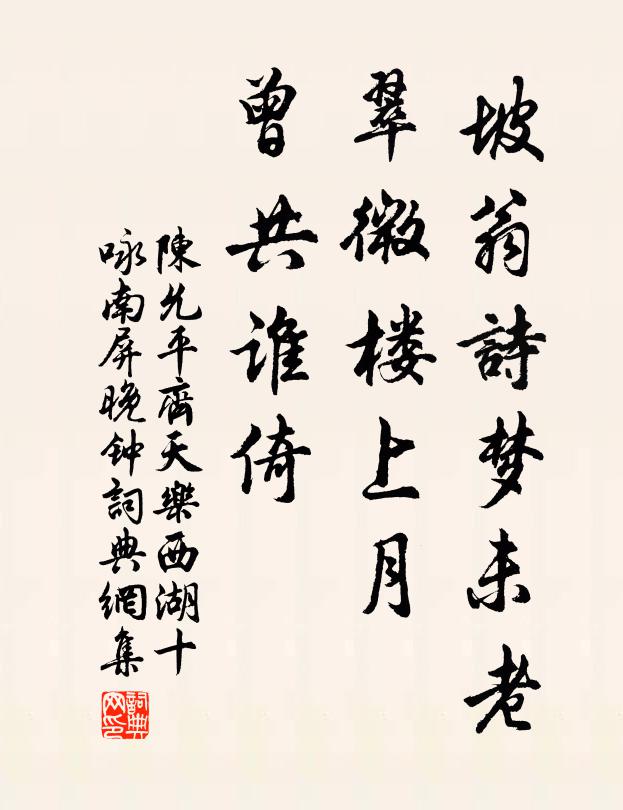 坡翁詩梦未老
翠微楼上月
曾共谁倚
陳允平齊天樂西湖十
咏南屏晚钟詞典網集
詞典
网印